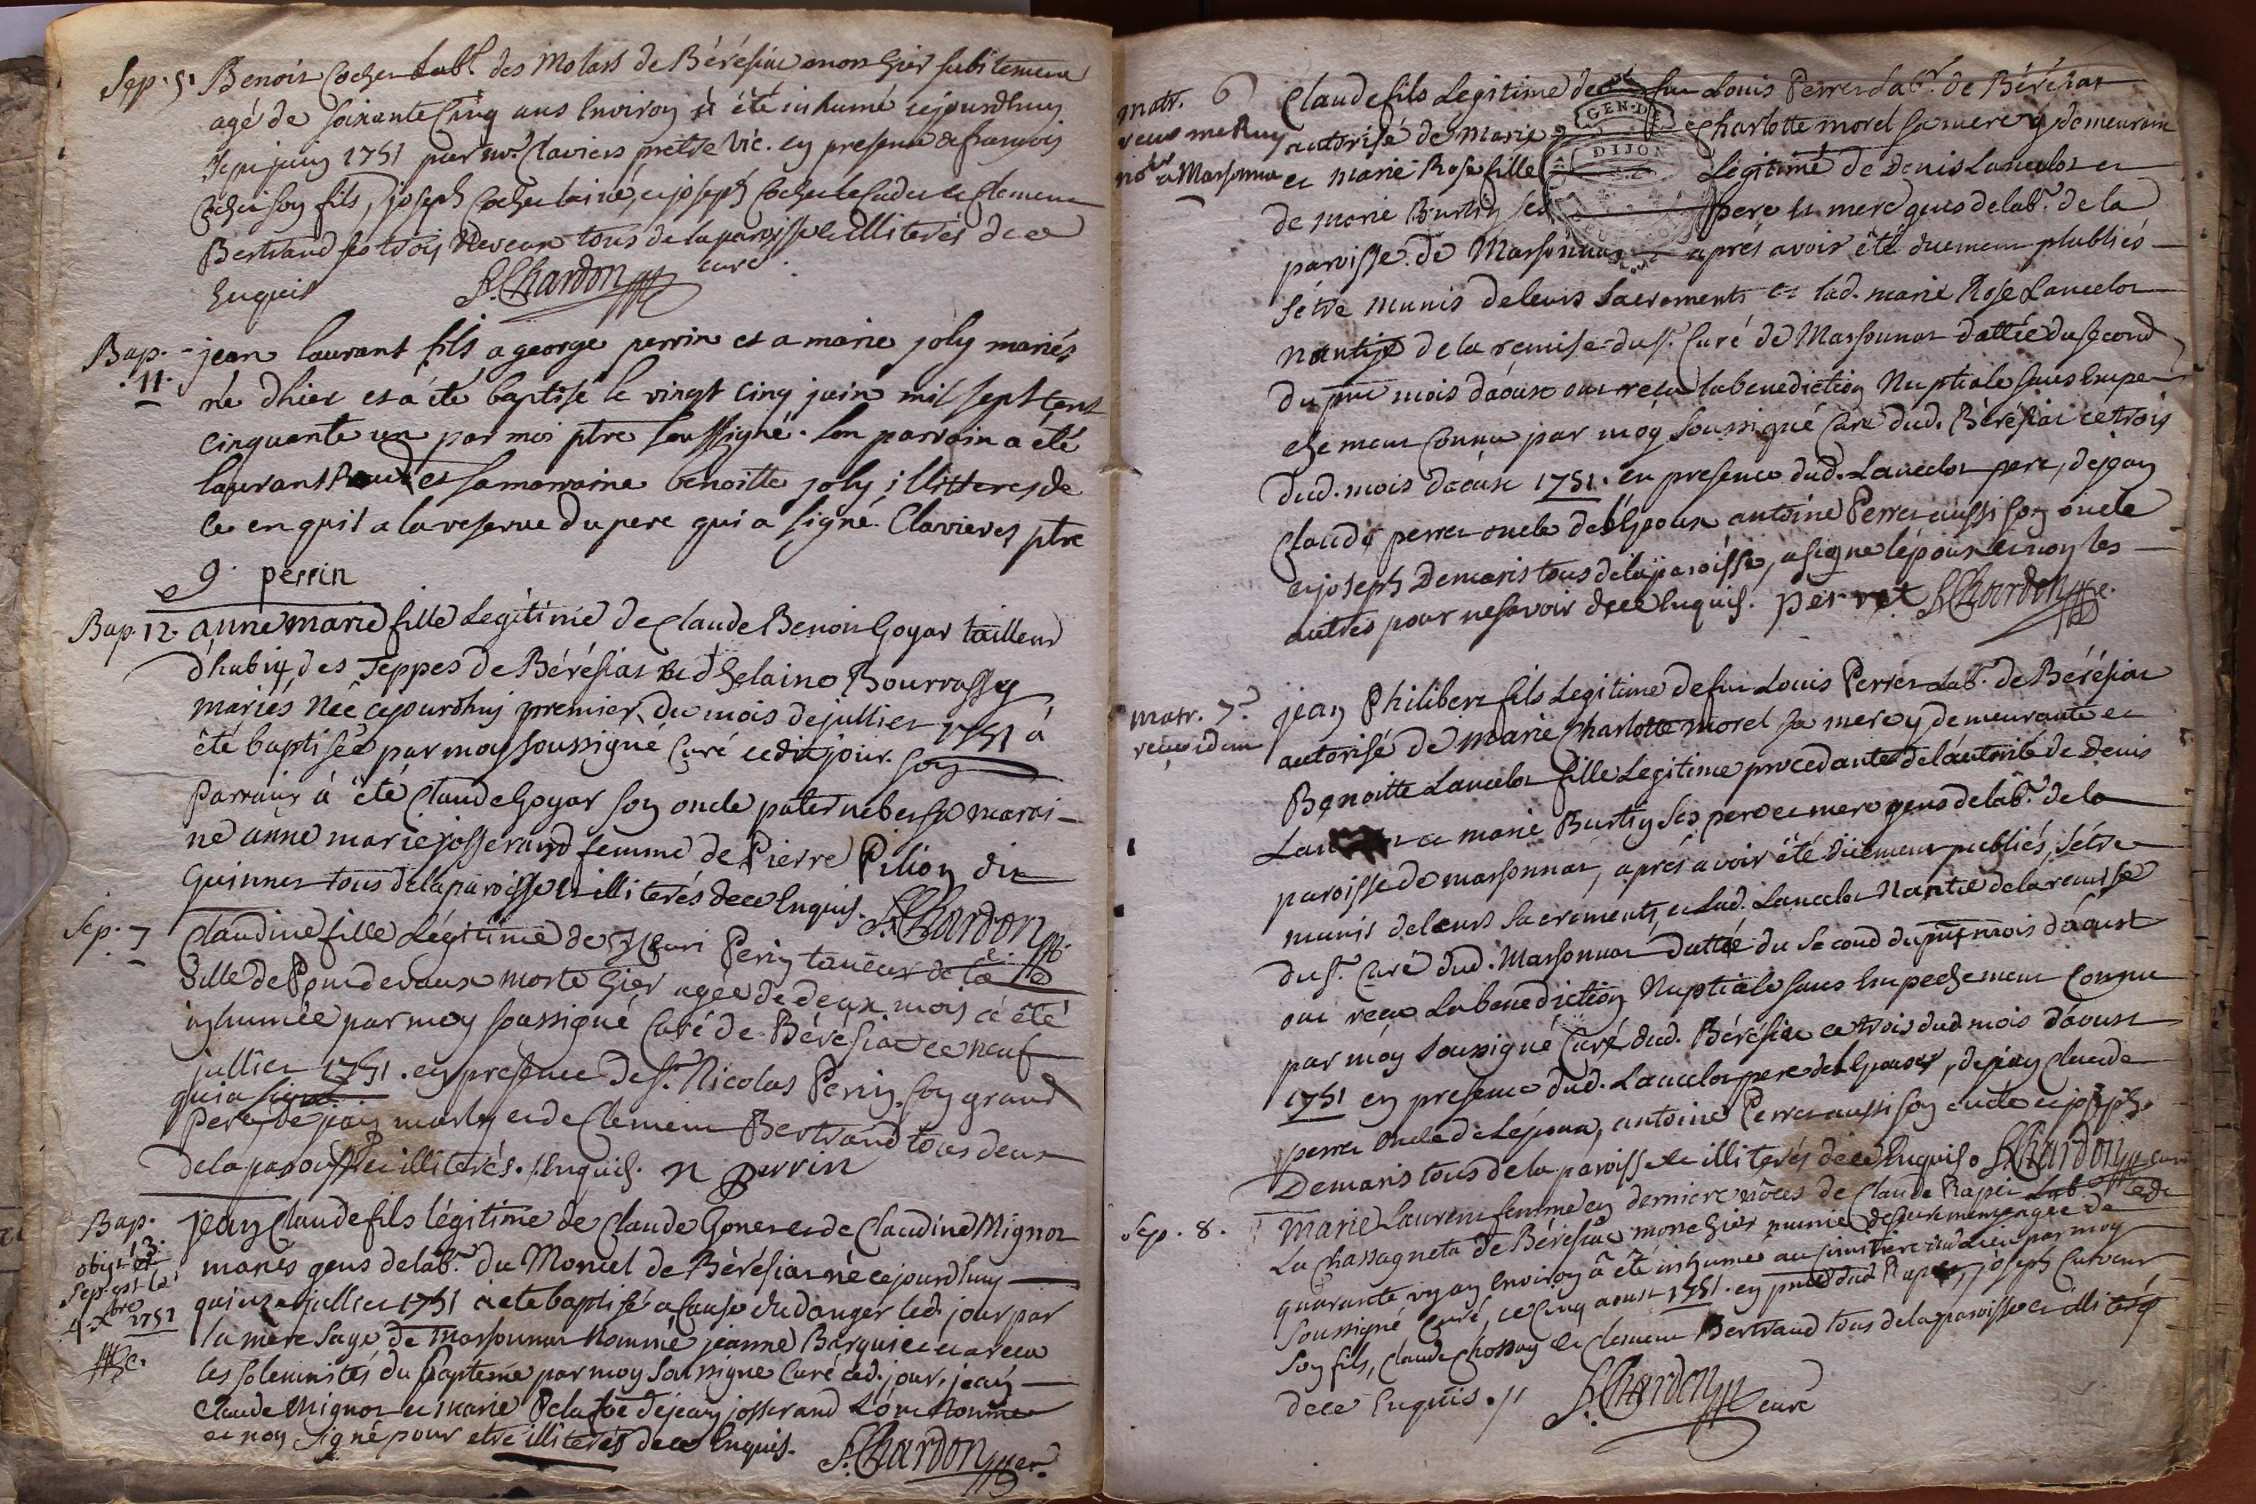 Sep. 51 Benoit Cochet Lab.r des Molars de Bérésiat mort hier subitement
agé de soixante Cinq ans Environ à été inhumé cejourdhuy
Juin 1751 par mr. Claviers prêtre Vic. en presence de françois
Cochet son fils, joseph Cochet lainé, et joseph Cochet le Cadet et Clement
Bertrand ses trois Neveux tous de la paroisse et illiterés de ce
Enquis F. Chardon curé.
Bap. 11. jean laurant fils a george perrin et a marie joly mariés
né dhier et à ïté baptisé le vingt cinq juin mil sept cent
cinquante un par moi ptre soussigné. son parrain a été
laurant et sa marraine benoitte joly illitteres de
ce enquis a la reserve du pere qui a signé. Clavieres ptre
g. perrin
Bap. 12. anne marie fille Legitime de Claude Benoit Goyat tailleur
d'habit, des Teppes de Bérésiat et d'helaine Bourrassy
mariés Née cejourdhuy premier du mois de juillet 1751 à
été baptisée par moy soussigné Curé ce dit jour. Son
parrain à été Claude Goyat son oncle paternel et sa marai-
ne anne marie josserand femme de Pierre Pilion dit
Guinnet tous de la paroisse et illiterés de ce Enquis. F. Chardon
Sep. 7 Claudine fille Légitime de Henri Perin taneur de la
Ville de Pont de vaux morte hier agée de deux mois à été
inhumée par moy soussigné Curé de Bérésiat ce neuf
juillet 1751. en presence de Sr. Nicolas Perin son grand
qui a signé
pere, de jean marly et de Clement Bertrand tous deux
de la paroisse et illiterés. Enquis. n perrin
Bap. 13. jean Claude fils légitime de Claude Gonet et de Claudine Mignot
obijt et
Sep. est la
4. xbre 1751
mariés gens de lab.r du Moncel de Bérésiat né cejourdhuy
quinze juillet 1751 à été baptisé a Cause du danger led. jour par
la mère sage de Marsonnat Nommé jeanne Barquiet et a reçu
les solemnités du Bapteme par moy soussigné Curé ced. jour. jean
Claude Mignot et marie Pelatoe de jean josserand L'ont Nommé
et non signé pour etre illiterés de ce Enquis. F. Chardon cur.
matr. 6
receu me Ruy
no.re a Marsonna
Claude fils Legitime de feu Louis Perret Lab.r de Bérésiat
autorisé de Marie Charlotte morel sa mere y demeurant
et marie Rose fille Légitime de Denis Lancelot et
de marie Burtin ses pere et mere gens de lab.r de la
GEN. DE
DIJON
paroisse de Marsonnat après avoir été duement plubliés
s'être munis de leurs Sacrements et lad. marie Rose Lancelot
nantije de la remise du Sr. Curé de Marsonnat dattée du second
du pnt mois d'aoust ont reçu la benediction Nuptiale sans Empe-
chement Connu par moy soussigné Curé dud. Bérésiat ce trois
dud. mois d'aoust 1751. en presence dud. Lancelot pere, de jean
Claude perret oncle de l'Epoux antoine Perret aussi son oncle
et joseph Demaris tous de la paroisse, a signé lépoux et non les
autres pour ne savoir de ce Enquis. perret F. Chardon c.
matr. 7.
receu idem
jean Philibert fils Legitime de feu Louis Perret Lab.r de Bérésiat
autorisé de marie Charlotte morel sa mere y demeurante et
Benoitte Lancelot fille Legitime procedante de l'autorité de Denis
Lancelot et marie Burtin ses pere et mere gens de lab.r de la
paroisse de marsonnat, après avoir été duement publiés, s'être
munis de leurs sacrements, et Lad. Lancelot Nantie de la remise
du Sr. Curé dud. Marsonnat dattée du second du pnt mois d'aoust
ont reçu la benediction Nuptiale sans Empechement Connu
par moy soussigné Curé dud. Bérésiat ce trois dud. mois d'aoust
1751 en presence dud. Lancelot pere de l'Epouse, de jean Claude
perret oncle de Lépoux, antoine Perret aussi son oncle et joseph
Demaris tous de la paroisse et illiterés de ce Enquis. F. Chardon curé
Sep. 8. Marie Laurent femme en derniere nôces de Claude Rapet Lab.r de
La Chassagneta de Bérésiat morte hier munie de sacrements agée de
quarante un an Environ à été inhumé au Cimetiere dud. Lieu par moy
soussigné Curé, ce Cinq aoust 1751. en pnce dud. Rapet, joseph Curveur
son fils, Claude Chossay et Clement Bertrand tous de la paroisse et illiterés
de ce Enquis. // F. Chardon curé